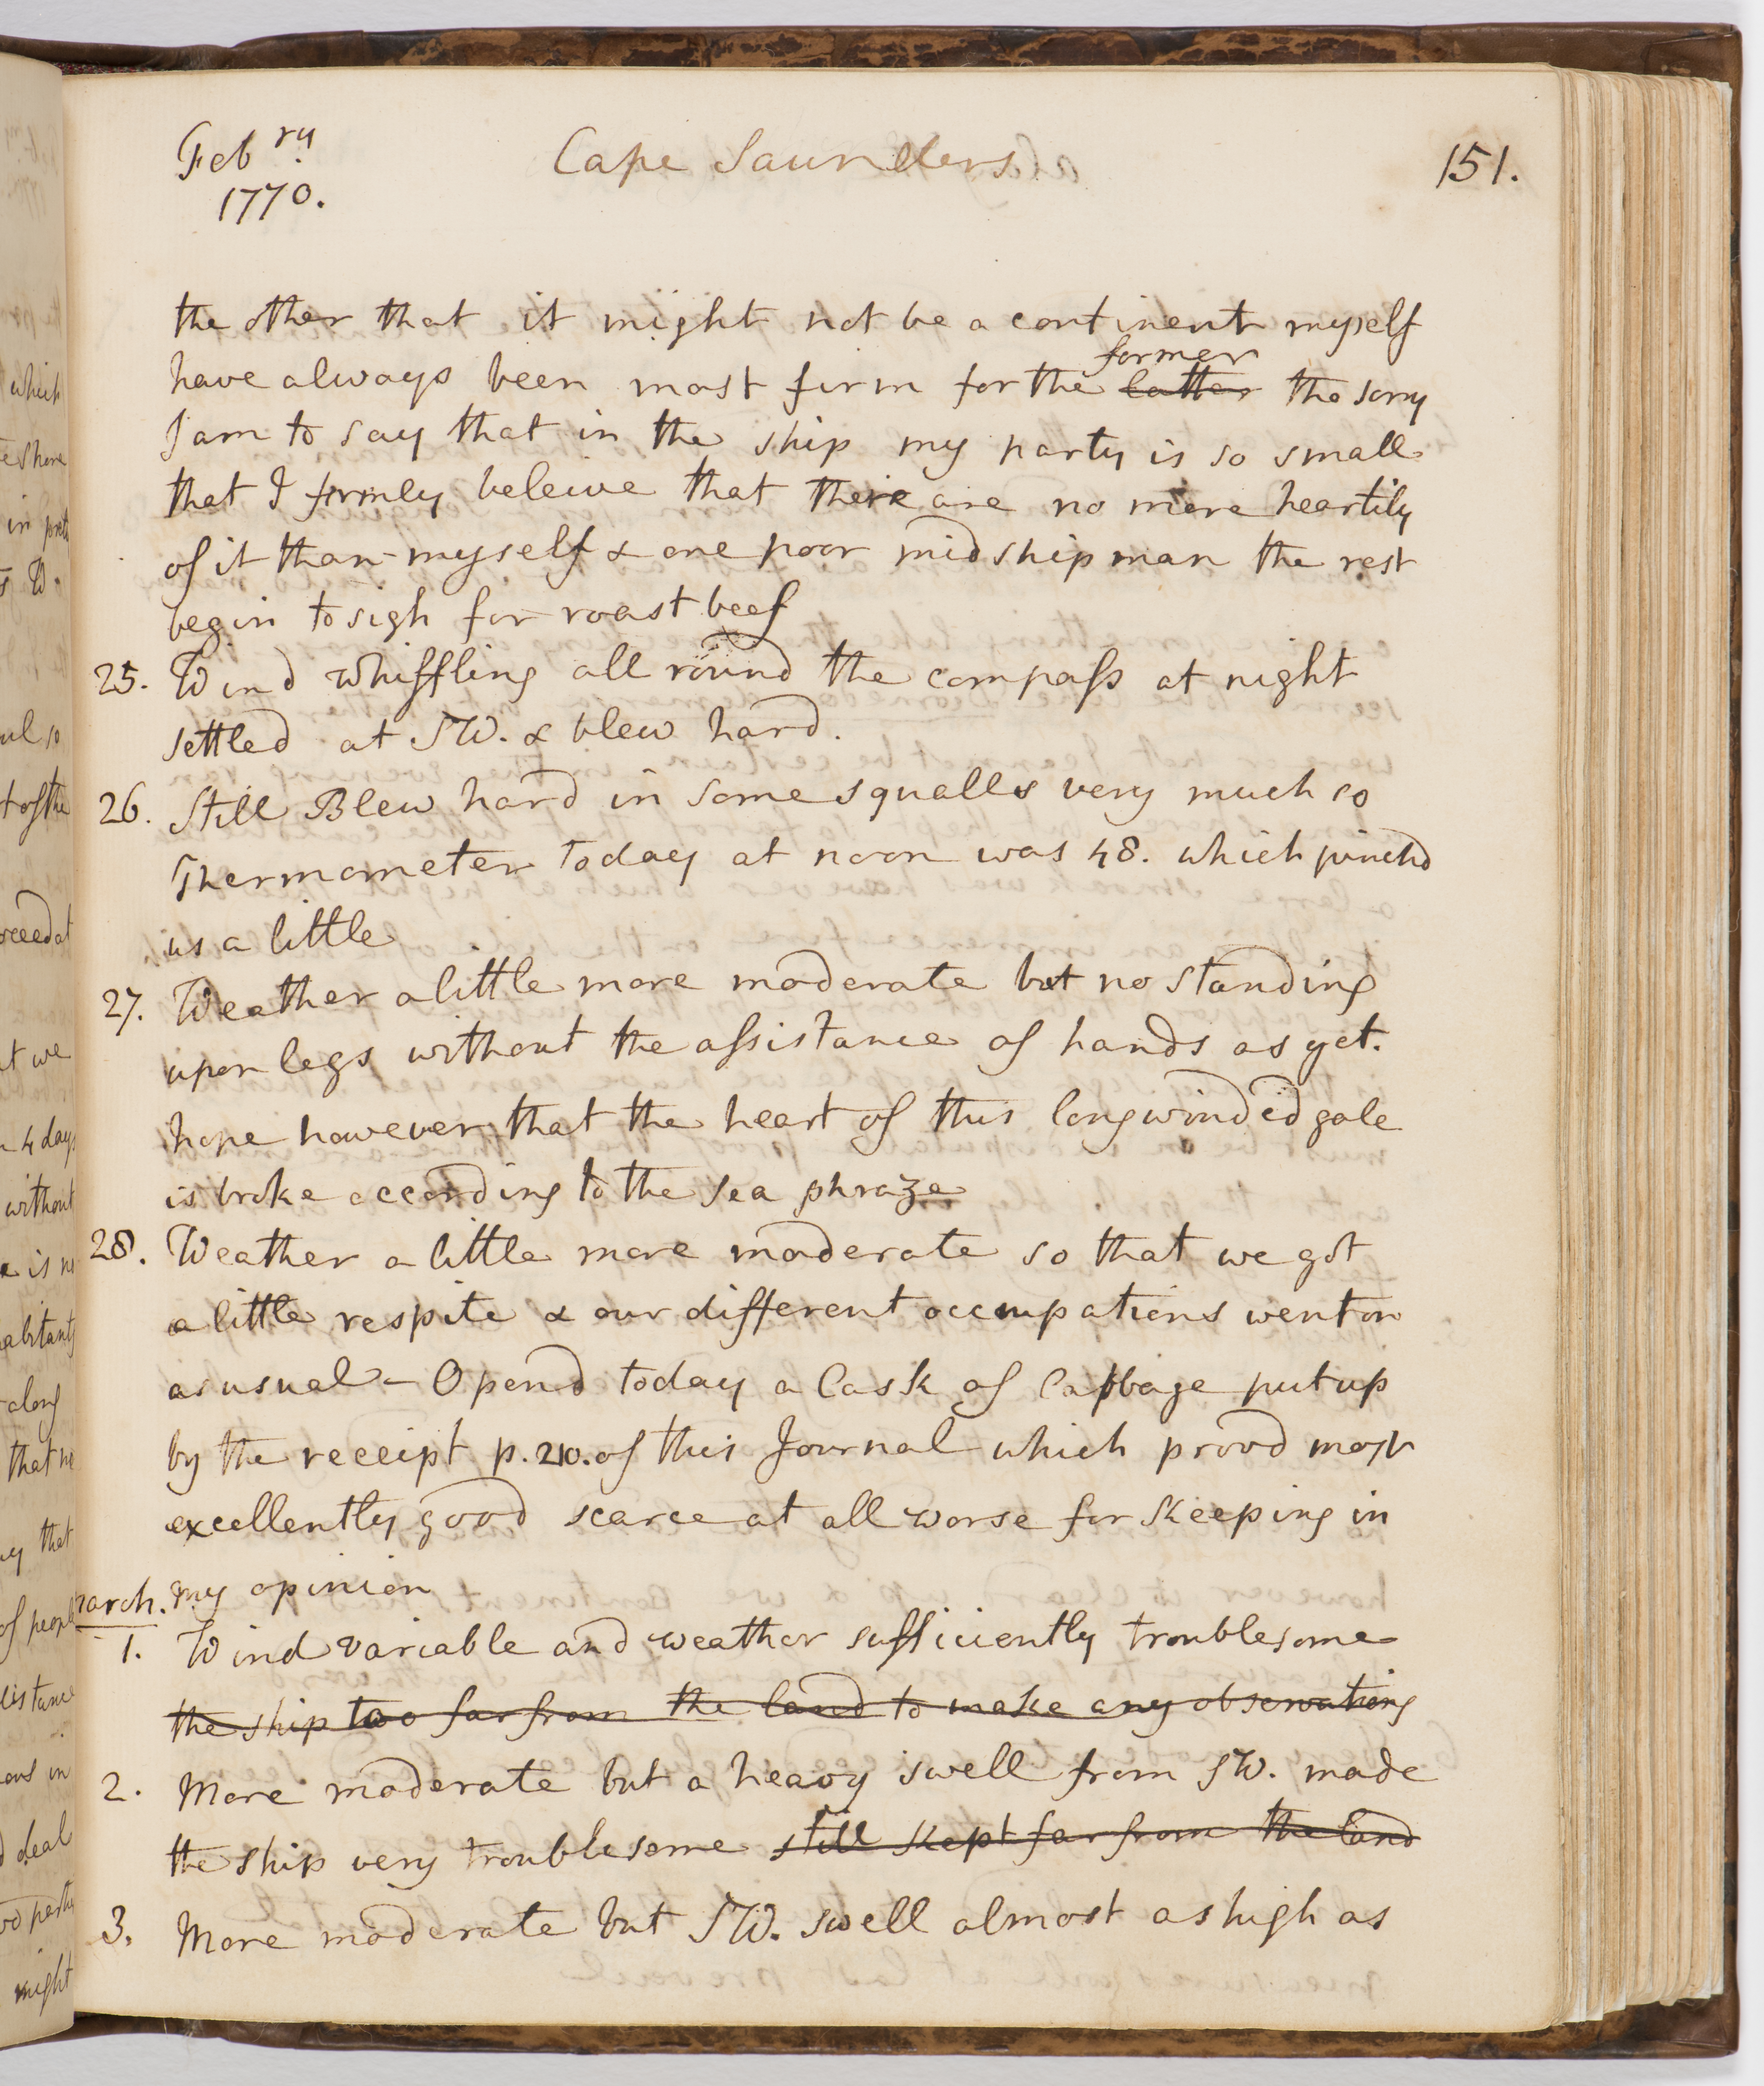 Feb ry.
1770.
Cape Saunders
151.
the other that it might not be a continent myself
former
have always been most firm for the latter tho sorry
I am to say that in the ship my party is so small
that I firmly beleive that there are no more heartily
of it than myself & one poor midshipman the rest
begin to sigh for roast beef
25. Wind whiffling all round the compass at night
settled at SW. & blew hard.
26. Still Blew hard in some squalls very much so
Thermometer today at noon was 48. which pinchd
us a little
27. Weather a little more moderate but no standing
upon legs without the assistance of hands as yet.
hope however that the heart of this longwinded gale
is broke according to the sea phraze
28. Weather a little more moderate so that we got
a little respite & our different occupations went on
as usual - Opend today a Cask of Cabbage put up
by the receipt p. 210. of this Journal which provd most
excellently good scarce at all worse for Keeping in
my opinion
March.
1. Wind variable and weather sufficiently troublesome
the ship too far from the land to make any observations
2. More moderate but a heavy swell from SW. made
the ship very troublesome still kept far from the land
3. More moderate but SW. swell almost as high as
which
in
without
along
that
might